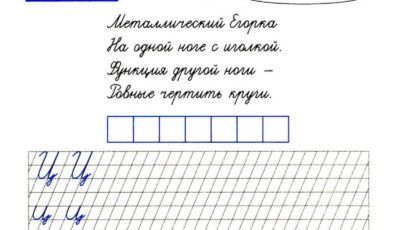 Металлический Егорка
На одной ноге с иголкой.
Функция другой ноги —
Ровные чертить круги.
Ц Ц
ц ц